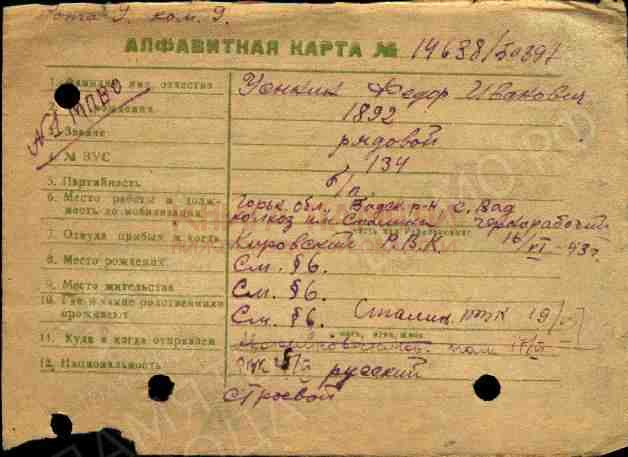 Рота 9. ком. 9.
АЛФАВИТНАЯ КАРТА № 14638/50397
1. Фамилия, имя, отчество Уенкин Федор Иванович
2. рождения 1892
3. Звание рядовой
4. № ВУС 134
5. Партийность б/п.
6. Место работы и долж-
ность до мобилизации Горьк. обл. Вадск. р-н с. Вад
колхоз им. Сталина чернорабочий
7. Откуда прибыл и когда Кировский Р.В.К. 16/XI-43г.
8. Место рождения См. §6.
9. Место жительства См. §6.
10. Где и какие родственники
проживают См. §6.
11. Куда и когда отправлен
12. Национальность русский
строевой